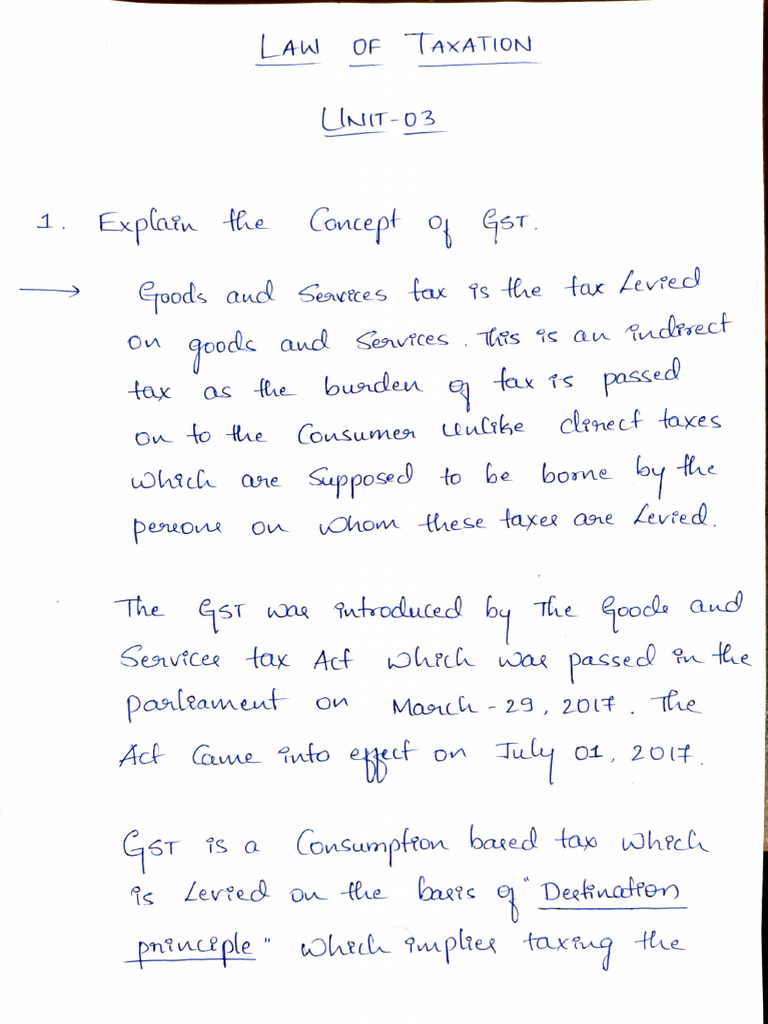 LAW OF TAXATION
UNIT-03
1. Explain the Concept of GST.
→ Goods and Services tax is the tax Levied
on goods and Services. This is an indirect
tax as the burden of tax is passed
on to the Consumer unlike direct taxes
which are Supposed to be borne by the
persons on whom these taxes are Levied.
The GST was introduced by The Goods and
Services tax Act which was passed in the
parliament on March-29, 2017. The
Act Came into effect on July 01, 2017.
GST is a Consumption based tax which
is Levied on the basis of "Destination
principle" which implies taxing the